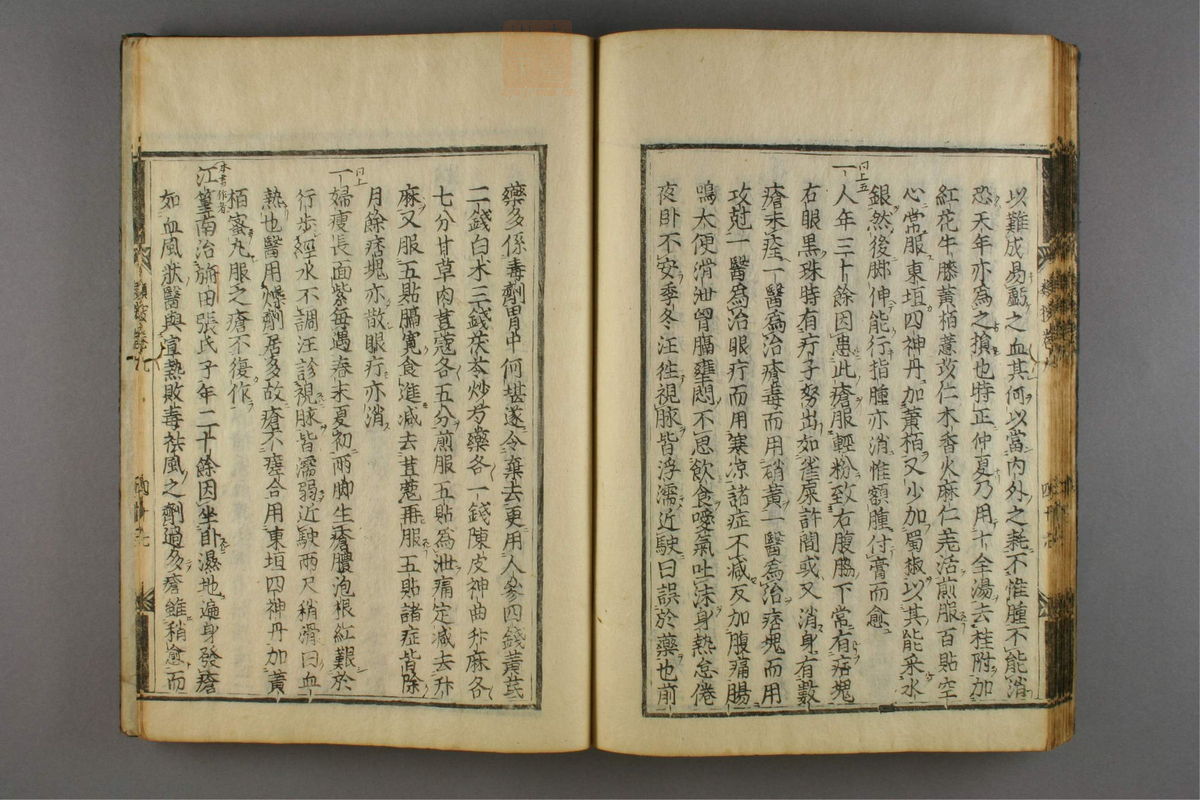 以難成易虧之血其何以當內外之耗不惟腫不能消
恐天年亦為之損也時正仲夏乃用十全湯去桂附加
紅花牛膝黃栢薏苡仁木香火麻仁羌活煎服百貼空
心常服東垣四神丹加黃栢又少加蜀椒以其能采水
銀然後脚伸能行指腫亦消惟額腫付膏而愈
同上五
一人年三十餘因患此瘡服輕粉致右腹脇下常有痞塊
右眼黑珠時有疔子努出如雀屎許間或又消身有數
瘡未痊一醫為治瘡毒而用硝黃一醫為治痞塊而用
攻尅一醫為治眼疔而用寒凉諸症不减反加腹痛腸
鳴大便滑泄胷膈壅悶不思飲食噯氣吐沫身熱怠倦
夜卧不安季冬汪徃視脉皆浮濡近駛曰誤於藥也前
藥多係毒劑胃中何堪遂令棄去更用人參四錢黃芪
二錢白术三錢茯苓炒芍藥各一錢陳皮神曲升麻各
七分甘草肉荳蔻各五分煎服五貼為泄痛定减去升
麻又服五貼膈寛食進减去荳蔻再服五貼諸症皆除
月餘痞塊亦散眼疔亦消
同上
一婦瘦長面紫每遇春末夏初兩脚生瘡膿泡根紅艱於
行步經水不調汪診視脉皆濡弱近駛兩尺稍滑曰血
熱也醫用燥劑居多故瘡不瘥合用東垣四神丹加黃
栢蜜丸服之瘡不復作
本書作者
江篁南治旃田張氏子年二十餘因坐卧濕地遍身發瘡
如血風狀醫與宣熱敗毒袪風之劑過多瘡雖稍愈而